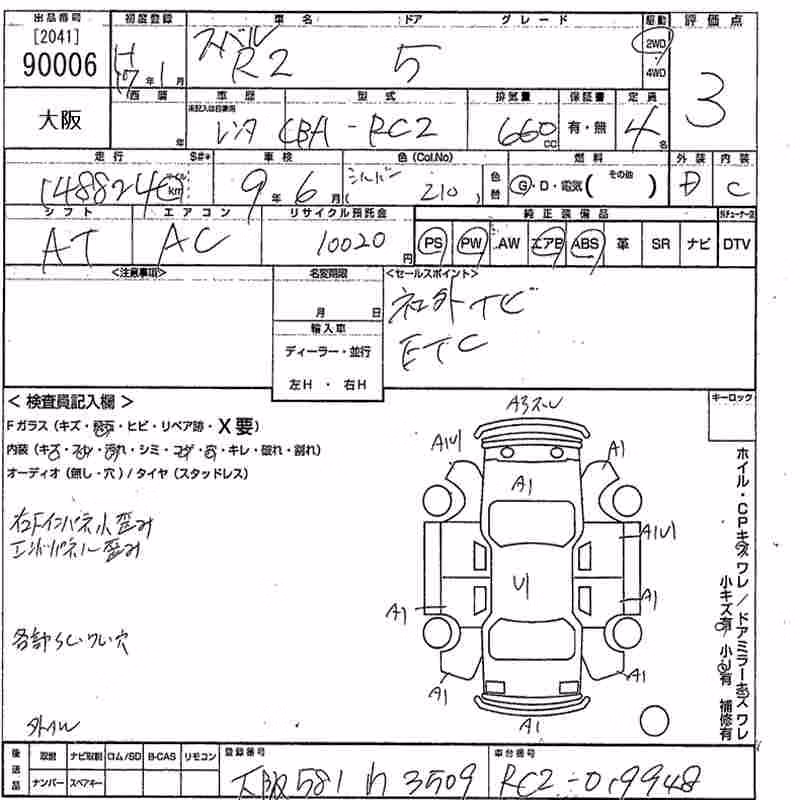 出品番号 初度登録 車名 ドア グレード 駆動 評価点
[2041] H スバル 2WD
90006 年 1 月 R2 5 4WD 3
西暦 車歴 型式 排気量 保証書 定員
大阪 年 未記入は自家用 レンタ CBA-RC2 660 CC 有・無 4名
走行 S#* 車検 色(Col.No) 燃料 外装 内装
148824 km 9年 6月 ( シルバー 210 ) 色替 G・D・電気 ( その他 ) D C
シフト エアコン リサイクル預託金 純正装備品
AT AC 10020円 PS PW AW エアB ABS 革 SR ナビ DTV
<注意事項> 名変期限 <セールスポイント>
月 日 社外
輸入車 ETC
ディーラー・並行
左H ・ 右H
< 検査員記入欄 > キーロック
Fガラス (キズ・飛石・ヒビ・リペア跡・X要)
内装 (キズ・スレ・汚れ・シミ・コゲ・穴・キレ・破れ・割れ)
オーディオ (無し・穴) / タイヤ (スタッドレス)
A3スレ
A1U A1
A1
右Fインパネル歪み
エンドパネル歪み
A1U
U1
A1 A1
各部SC・ワレ・穴
A1 A1
A1
外AW
ホイル・CPキズ ワレ / ドアミラーキズ ワレ
小キズ有 小U有 補修有
後送品 取説 ナビ取説 ロム/SD B-CAS リモコン 登録番号 車台番号
ナンバー スペアキー 大阪 581 わ 3509 RC2-019948